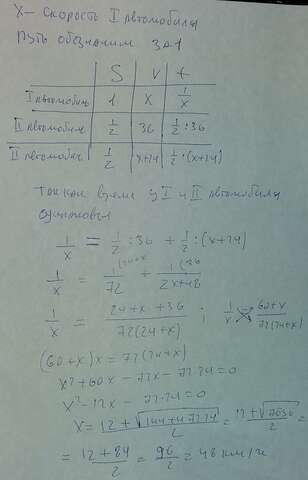 X – скорость I автомобиля
Путь обозначим за 1
S V t
I автомобиль 1 X 1/x
II автомобиль 1/2 36 1/2 : 36
II автомобиль 1/2 x+24 1/2 : (x+24)
Так как время у I и II автомобиля
одинаковы
1/x = 1/2 : 36 + 1/2 : (x+24)
1/x = 1(24+x / 72 + 1(36 / 2x+48
1/x = 24+x+36 / 72(24+x) ; 1/x 60+x / 72(24+x)
(60+x)x = 72(24+x)
x²+60x – 72x – 72·24=0
x² – 12x – 72·24=0
x = 12+√144+4·72·24 / 2 = 12+√7056 / 2 =
= 12+84 / 2 = 96 / 2 = 48 км/ч